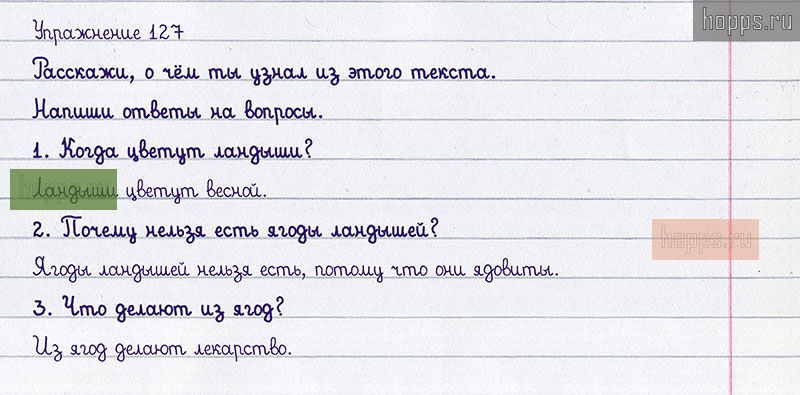 hopps.ru
Упражнение 127
Расскажи, о чём ты узнал из этого текста.
Напиши ответы на вопросы.
1. Когда цветут ландыши?
Ландыши цветут весной.
2. Почему нельзя есть ягоды ландышей?
hopps.ru
Ягоды ландышей нельзя есть, потому что они ядовиты.
3. Что делают из ягод?
Из ягод делают лекарство.